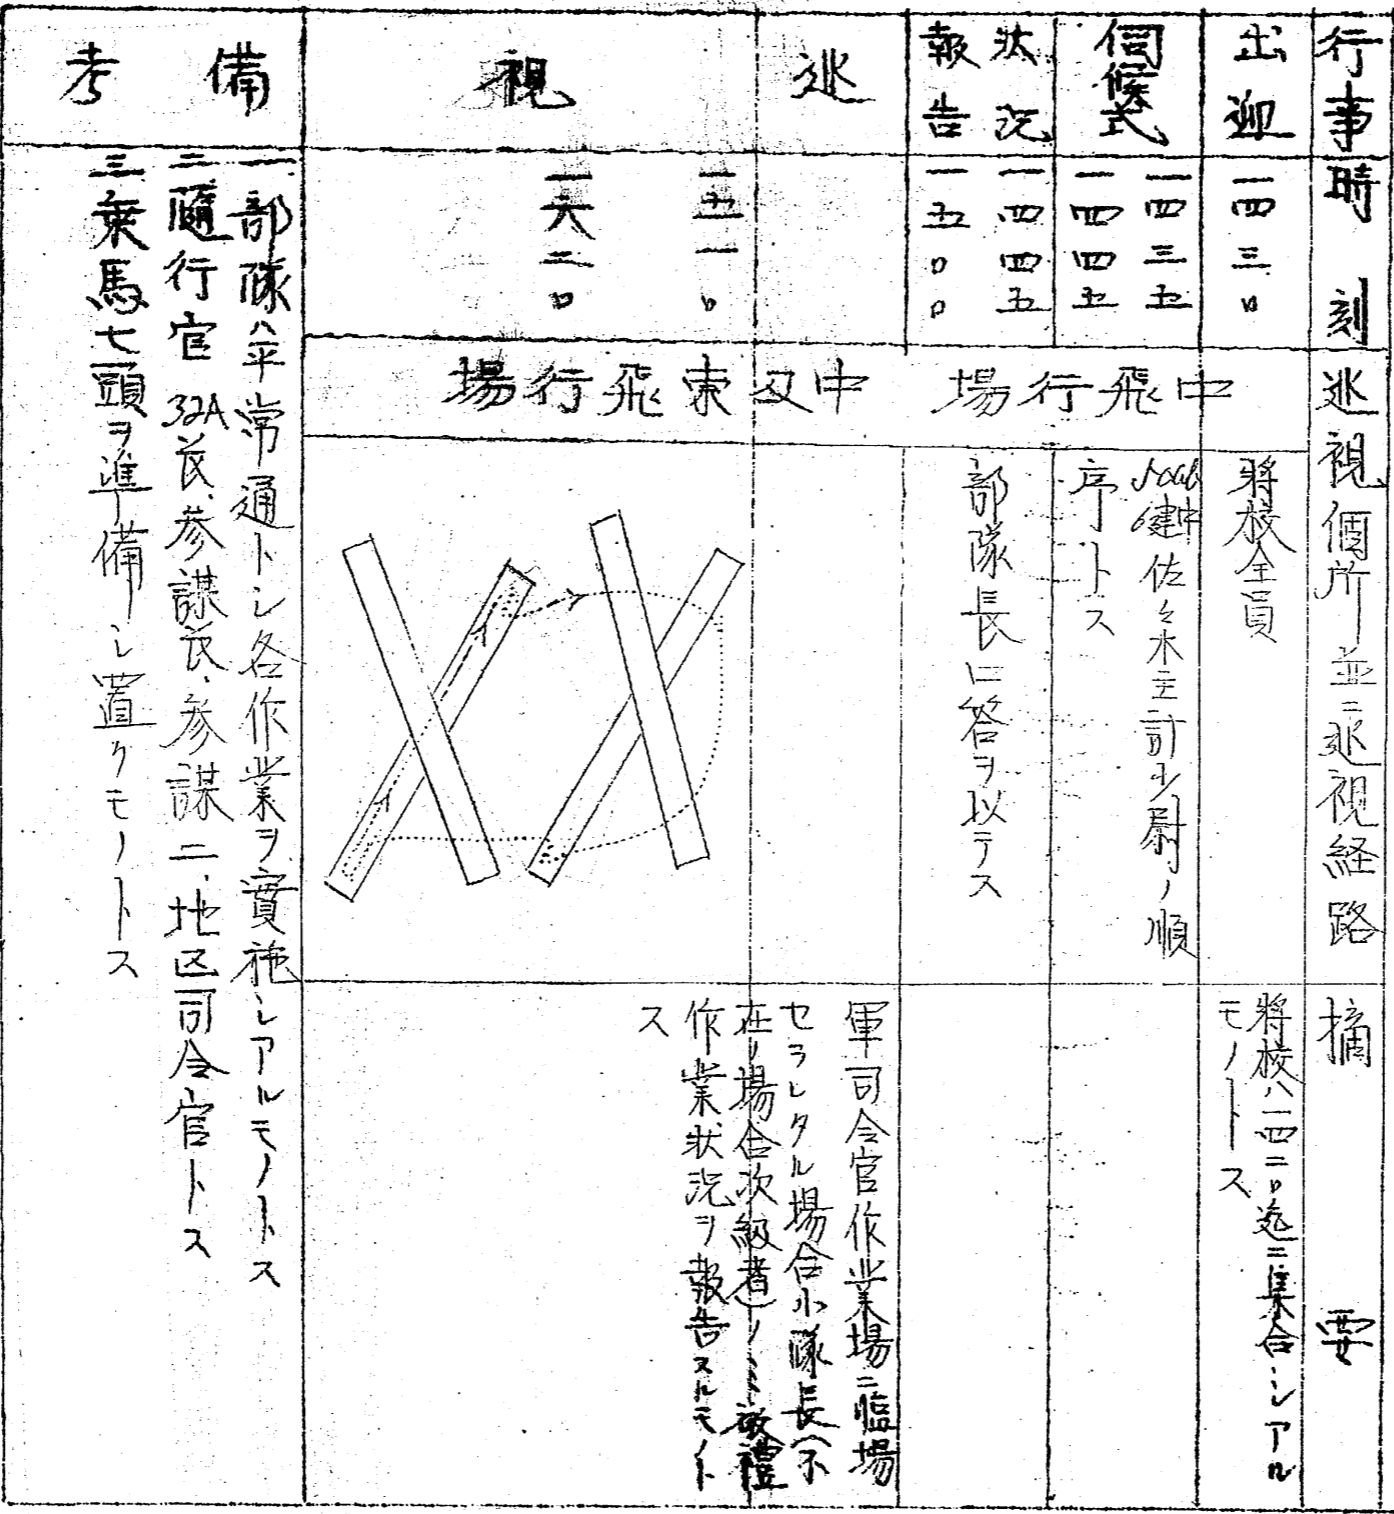 行事
時刻
巡視個所並ニ巡視経路
摘要
出迎
一四三〇
中飛行場
将校全員
将校ハ一四二〇迄ニ集合シアル
モノトス
伺候式
一四三五
一四四五
佐々木主計少尉ノ順
序トス
状況
報告
一四四五
一五〇〇
部隊長口答ヲ以テス
巡視
一五一〇
一六二〇
中及東飛行場
軍司令官作業場ニ臨場
セラレタル場合小隊長(不
在ノ場合次級者)ノミ敬禮
作業状況ヲ報告スルモノト
ス
備考
一部隊ハ平常通トシ各作業ヲ實施シアルモノトス
二隨行官32A長、参謀長、参謀二、地区司令官トス
三乗馬七頭ヲ準備シ置クモノトス